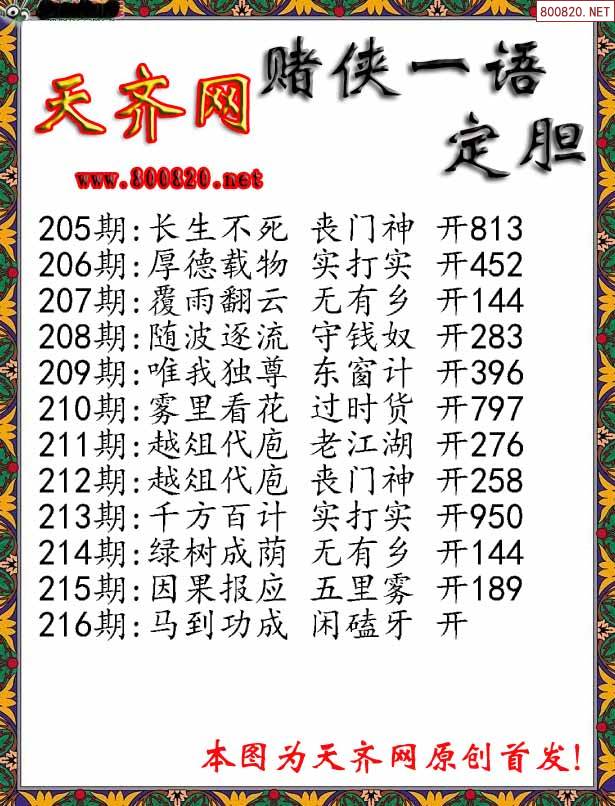 800820.NET
赌侠一语
天齐网
定胆
www.800820.net
205期:长生不死 丧门神 开813
206期:厚德载物 实打实 开452
207期:覆雨翻云 无有乡 开144
208期:随波逐流 守钱奴 开283
209期:唯我独尊 东窗计 开396
210期:雾里看花 过时货 开797
211期:越俎代庖 老江湖 开276
212期:越俎代庖 丧门神 开258
213期:千方百计 实打实 开950
214期:绿树成荫 无有乡 开144
215期:因果报应 五里雾 开189
216期:马到功成 闲磕牙 开
本图为天齐网原创首发!